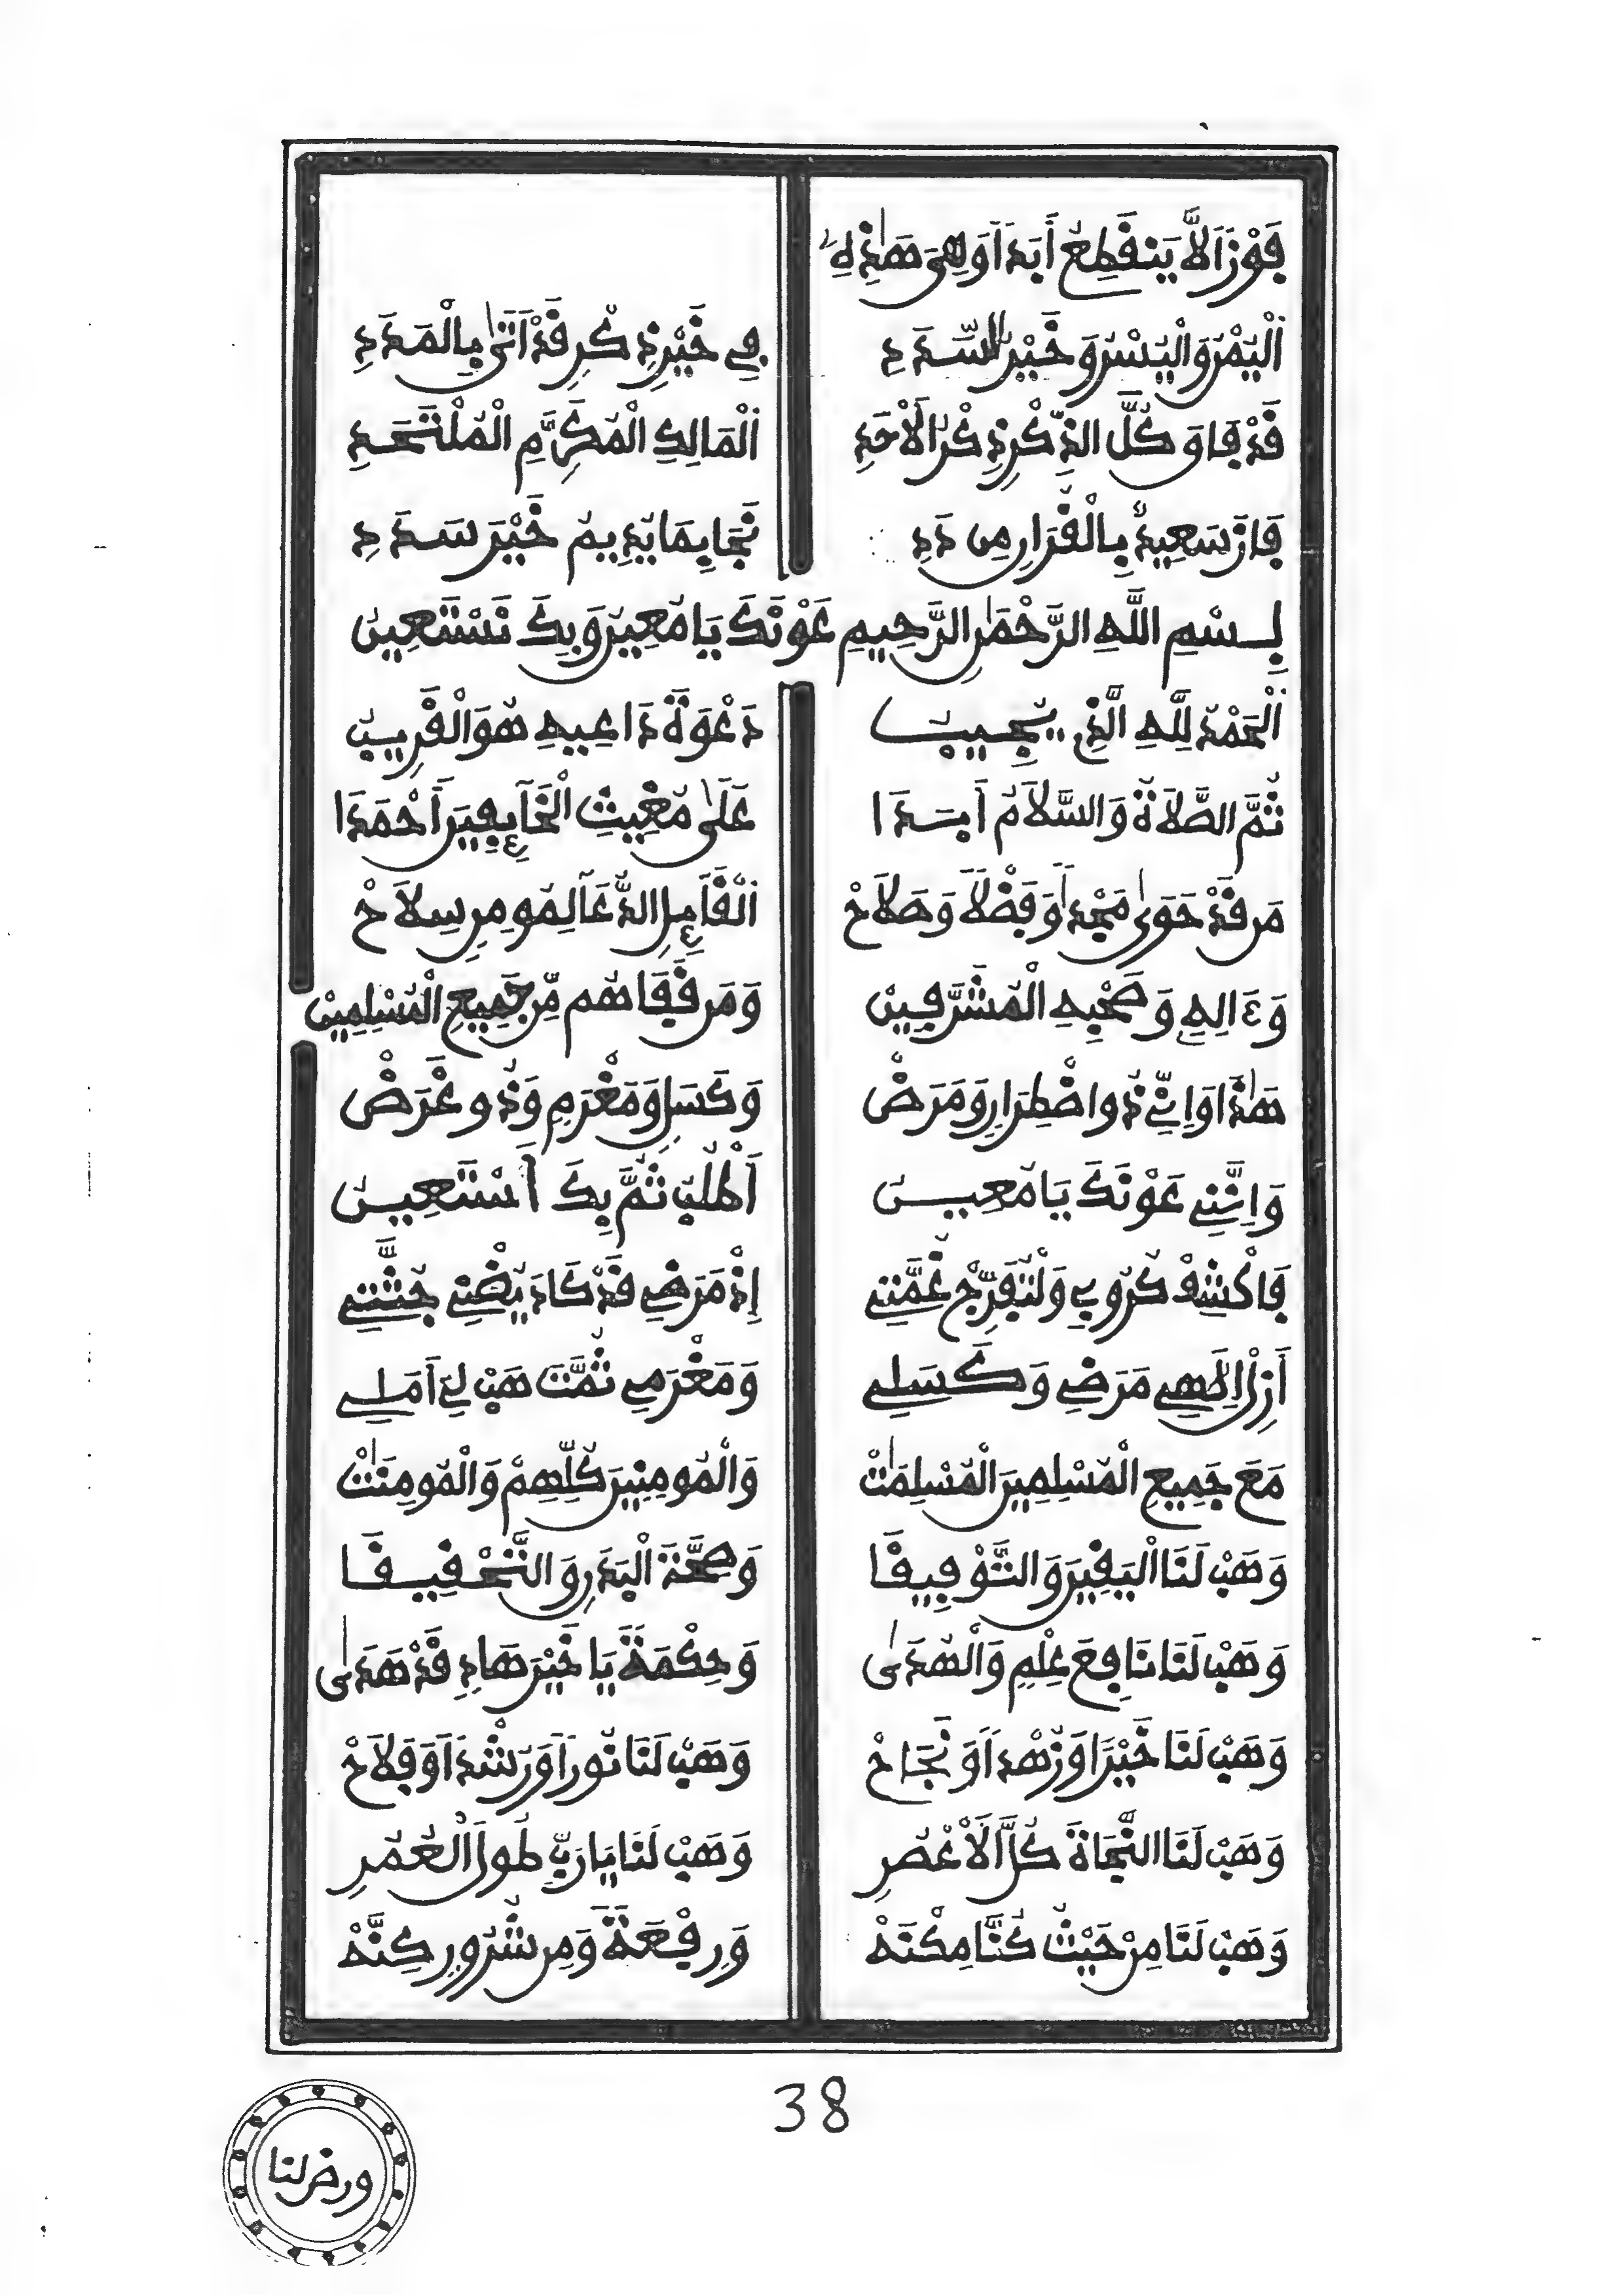 فَوْزًا لاَّ يَنفَطِعُ أَبَدًا وَلِيَ هَٰذِهِ
اَلْيُمْنُ وَالْيُسْرُ وَخَيْرُ السَّدَدِ فِي خَيْرِ ذِكْرٍ قَدْ أَتَىٰ بِالْمَدَدِ
قَدْ فَاقَ كُلَّ الذِّكْرِ ذِكْرُ الأَحَدِ اَلْمَالِكِ الْمُكَرَّمِ الْمُلْتَحَدِ
فَازَ سَعِيدٌ بِالْفِرَارِ مِن دَدِ نَجَا بِمَا يُدِيمُ خَيْرَ سَدَدِ
بِسْمِ اللَّهِ الرَّحْمَٰنِ الرَّحِيمِ عَوْنَكَ يَا مُعِينُ وَبِكَ نَسْتَعِينُ
اَلْحَمْدُ لِلَّهِ الَّذِي يُجِيبُ دَعْوَةَ دَاعِيهِ هُوَ الْقَرِيبُ
ثُمَّ الصَّلاَةُ وَالسَّلاَمُ أَبَدَا عَلَىٰ مُغِيثِ الْخَآئِفِينَ أَحْمَدَا
مَن قَدْ حَوَىٰ مَجْدًا وَفَضْلاً وَصَلاَحْ اَلْقَآئِلِ الدُّعَآ لِمُومِنٍ سِلاَحْ
وَءَالِهِ وَصَحْبِهِ الْمُشَرَّفِينْ وَمَن قَفَاهُم مِّن جَمِيعِ الْمُسْلِمِينْ
هَٰذَا وَإِنِّي ذُو اضْطِرَارٍ وَمَرَضْ وَكَسَلٍ وَمَغْرَمٍ وَذُو غَرَضْ
وَإِنَّنِي عَوْنَكَ يَا مُعِينُ أَطْلُبُ ثُمَّ بِكَ أَسْتَعِينُ
فَاكْشِفْ كُرُوبِي وَلْتُفَرِّجْ غُمَّتِي إِذْ مَرَضِي قَدْ كَادَ يُضْنِي جُثَّتِي
أَزِلْ إِلَٰهِي مَرَضِي وَكَسَلِي وَمَغْرَمِي ثُمَّتَ هَبْ لِي أَمَلِي
مَعَ جَمِيعِ الْمُسْلِمِينَ الْمُسْلِمَٰتْ وَالْمُومِنِينَ كُلِّهِمْ وَالْمُومِنَٰتْ
وَهَبْ لَنَا الْيَقِينَ وَالتَّوْفِيقَا وَصِحَّةَ الْبَدَنِ وَالتَّخْفِيفَا
وَهَبْ لَنَا نَافِعَ عِلْمٍ وَالْهُدَىٰ وَحِكْمَةً يَا خَيْرَ هَادٍ قَدْ هَدَىٰ
وَهَبْ لَنَا خَيْرًا وَزُهْدًا وَنَجَاحْ وَهَبْ لَنَا نُورًا وَرُشْدًا وَفَلاَحْ
وَهَبْ لَنَا النَّجَاةَ كُلَّ الأَعْصُرِ وَهَبْ لَنَا يَا رَبِّ طُولَ الْعُمُرِ
وَهَبْ لَنَا مِنْ حَيْثُ كُنَّا مِكْنَهْ وَرِفْعَةً وَمِن شُرُورٍ كِنَّهْ
38
ورض لنا